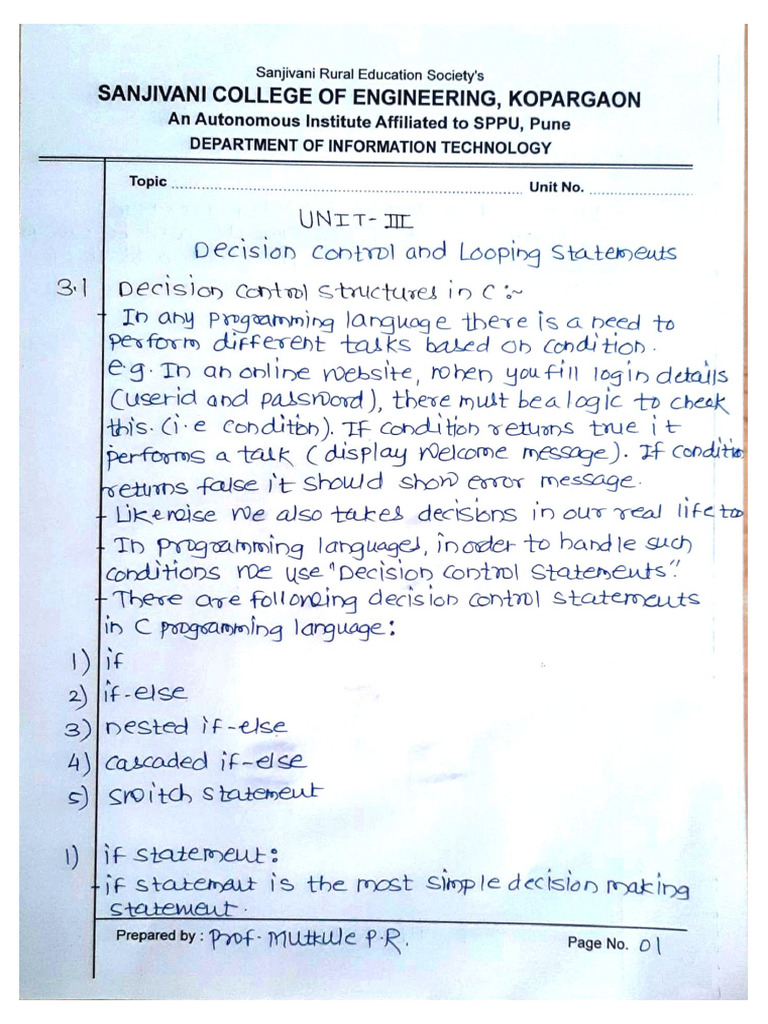 Sanjivani Rural Education Society's
SANJIVANI COLLEGE OF ENGINEERING, KOPARGAON
An Autonomous Institute Affiliated to SPPU, Pune
DEPARTMENT OF INFORMATION TECHNOLOGY
Topic ........................ Unit No. ........................
UNIT-III
Decision Control and Looping Statements
3.1 Decision Control Structures in C :~
- In any programming language there is a need to
perform different tasks based on condition.
e.g. In an online website, when you fill login details
(userid and password), there must be a logic to check
this. (i.e condition). If condition returns true it
performs a task (display welcome message). If condition
returns false it should show error message.
- Likewise we also takes decisions in our real life too
- In programming languages, inorder to handle such
conditions we use "Decision Control Statements".
- There are following decision control statements
in C programming language:
1) if
2) if-else
3) nested if-else
4) cascaded if-else
5) switch statement
1) if statement:
- if statement is the most simple decision making
statement.
Prepared by : Prof. Mutkule P.R. Page No. 01